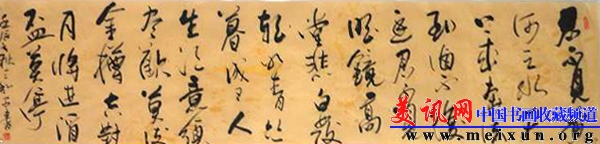 君不見黄
河之水天
上来奔流
到海不復
迴君不見
明鏡高
堂悲白髮
朝如青丝
暮成雪人
生得意須
尽歡莫使
金樽空對
月將進酒
盃莫停
美讯网
中国书画收藏频道
www.meixun.org